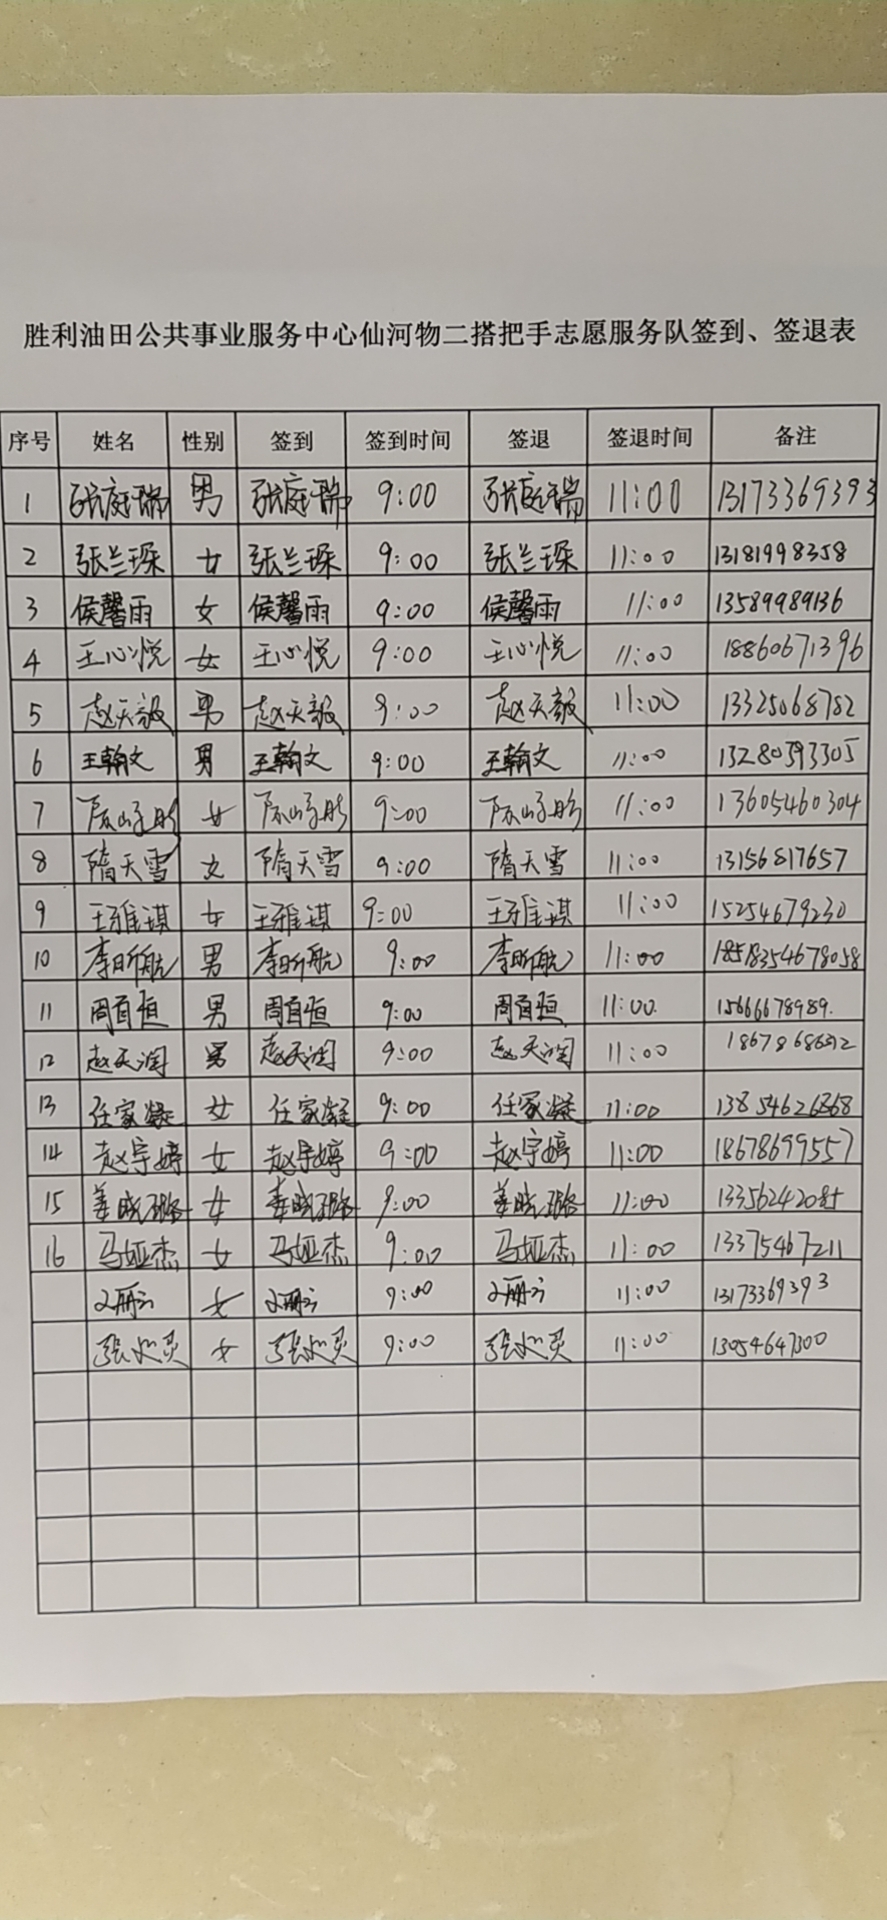 胜利油田公共事业服务中心仙河物二搭把手志愿服务队签到、签退表
序号 姓名 性别 签到 签到时间 签退 签退时间 备注
1 张庭瑞 男 张庭瑞 9:00 张庭瑞 11:00 13173369393
2 张兰琛 女 张兰琛 9:00 张兰琛 11:00 13181998358
3 侯馨雨 女 侯馨雨 9:00 侯馨雨 11:00 13589989136
4 王心悦 女 王心悦 9:00 王心悦 11:00 18860671396
5 赵天毅 男 赵天毅 9:00 赵天毅 11:00 13325068782
6 王翰文 男 王翰文 9:00 王翰文 11:00 13280593305
7 女 9:00 11:00 13605460304
8 隋天雪 女 隋天雪 9:00 隋天雪 11:00 13156817657
9 王雅琪 女 王雅琪 9:00 王雅琪 11:00 15254679230
10 李昕航 男 李昕航 9:00 李昕航 11:00
11 周百恒 男 周百恒 9:00 周百恒 11:00. 15666678989.
12 赵天润 男 赵天润 9:00 赵天润 11:00
13 任家凝 女 任家凝 9:00 任家凝 11:00 13854626868
14 赵宇婷 女 赵宇婷 9:00 赵宇婷 11:00 18678699557
15 姜晓璐 女 姜晓璐 9:00 姜晓璐 11:00 13356242085
16 马娅杰 女 马娅杰 9:00 马娅杰 11:00 13375467211
女 9:00 11:00 13173369393
女 9:00 11:00 13054647300